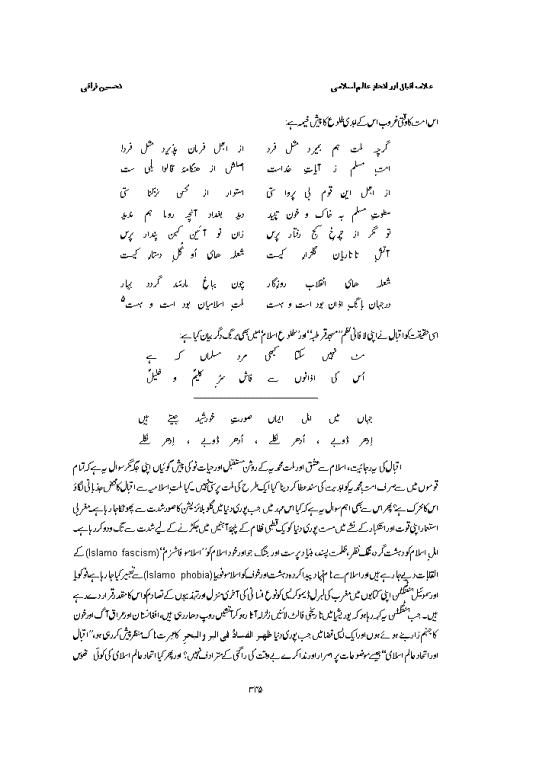 علامہ اقبال اور اتحادِ عالمِ اسلامی تحسین فراقی
اس امت کا وقتی غروب اس کے ابدی طلوع کا پیش خیمہ ہے:
گرچہ ملت ہم بمیرد مثل فرد از اجل فرمان پذیرد مثل فرد
امتِ مسلم ز آیاتِ خداست اصلش از ہنگامۂ قالوا بلیٰ ست
از اجل این قوم بی پروا ستی استوار از نحن نزلنا ستی
سطوتِ مسلم بہ خاک و خون تپید دید بغداد آنچہ روما ہم ندید
تو مگر از چرخ کج رفتار پرس زان نو آئین کہن پندار پرس
آتشِ تاتاریان گلزار کیست شعلہ ھای او گلِ دستار کیست
شعلہ ھای انقلاب روزگار چون بباغ ما رسد گردد بہار
در جہان بانگِ اذان بود است و ہست ملتِ اسلامیان بود است و ہست۵
اسی حقیقت کو اقبال نے اپنی لافانی نظم ”مسجد قرطبہ“ اور ”طلوع اسلام“ میں بھی برنگِ دگر بیان کیا ہے:
مٹ نہیں سکتا کبھی مردِ مسلماں کہ ہے
اُس کی اذانوں سے فاش سرِّ کلیمؑ و خلیلؑ
جہاں میں اہلِ ایماں صورتِ خورشید جیتے ہیں
اِدھر ڈوبے ، اُدھر نکلے ، اُدھر ڈوبے ، اِدھر نکلے
اقبال کی یہ رجائیت، اسلام سے عشق اور ملت محمدیہ کے روشن مستقبل اور حیات نو کی پیش گوئیاں اپنی جگہ مگر سوال یہ ہے کہ تمام
قوموں میں سے صرف امتِ محمدیہ کو ابدیت کی سند عطا کر دینا کیا ایک طرح کی ملت پرستی نہیں۔ کیا ملتِ اسلامیہ سے اقبال کا محض جذباتی لگاؤ
اس کا محرک ہے؟ پھر اس سے بھی اہم سوال یہ ہے کہ کیا اس عہد میں جب پوری دنیا میں گلوبلائزیشن کا صور شدت سے پھونکا جا رہا ہے، مغربی
استعمار اپنی قوت اور استکبار کے نشے میں مست پوری دنیا کو یک قطبی نظام کے پنجۂ آہنیں میں جکڑنے کے لیے شدت سے تگ و دو کر رہا ہے۔
اہلِ اسلام کو دہشت گرد، تنگ نظر، ظلمت پسند، بنیاد پرست اور جنگ جو اور خود اسلام کو ”اسلامو فاشزم“ (Islamo fascism) کے
القابات دیے جا رہے ہیں اور اسلام سے نام نہاد پیدا کردہ دہشت اور خوف کو اسلامو فوبیا (Islamo phobia) سے تعبیر کیا جا رہا ہے، فوکویاما
اور سیموئیل ہنٹنگٹن اپنی کتابوں میں مغرب کی لبرل ڈیموکریسی کو نوعِ انسانی کی آخری منزل اور تہذیبوں کے تصادم کو اس کا مقدر قرار دے رہے
ہیں۔ جب ہنٹنگٹن یہ کہہ رہا ہو کہ یوریشیا میں تاریخی فالٹ لائنیں زلزلہ آسا ہو کر آتشیں روپ دھار رہی ہیں، افغانستان اور عراق آگ اور خون
کا جہنم زار بنے ہوئے ہوں اور ایک ایسی فضا میں جب پوری دنیا ظہر الفسادُ فی البر والبحر کا عبرت ناک منظر پیش کر رہی ہو، ”اقبال
اور اتحاد عالم اسلامی“ جیسے موضوعات پر اصرار اور مذاکرے بے وقت کی راگنی کے مترادف نہیں؟ اور پھر کیا اتحاد عالم اسلامی کی کوئی ٹھوس
۳۴۵